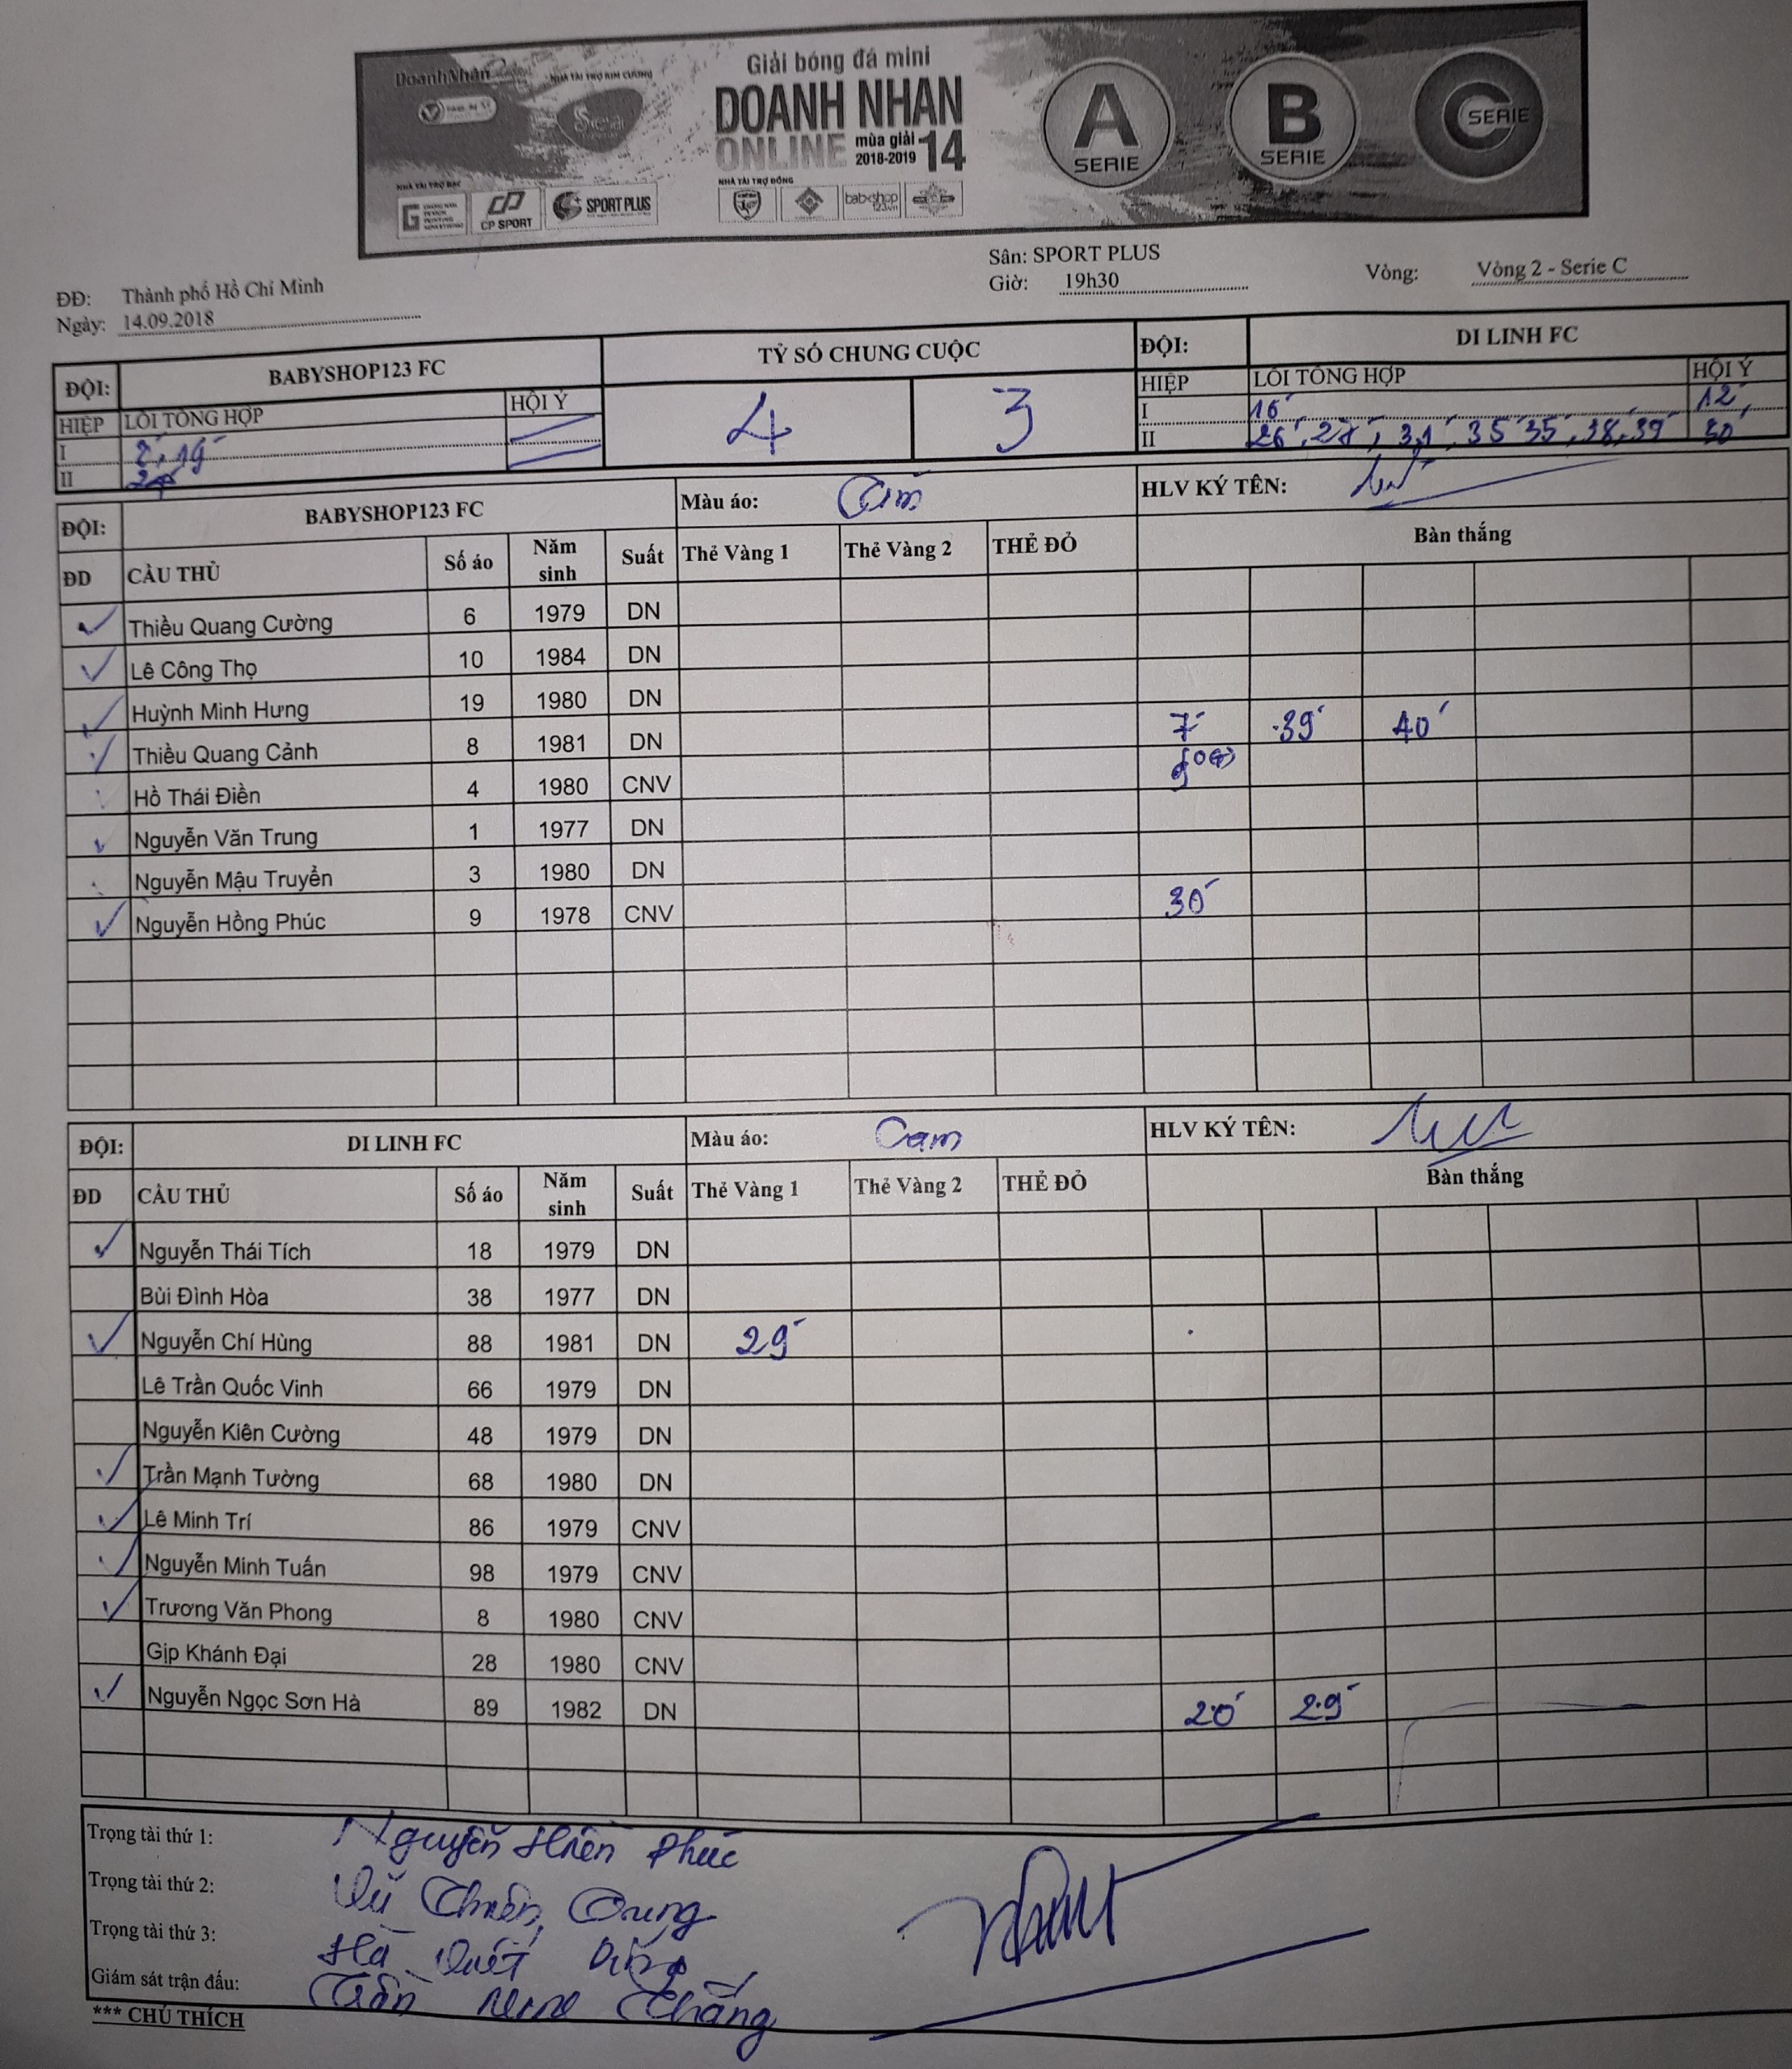 DoanhNhân
NHÀ TÀI TRỢ KIM CƯƠNG
Giải bóng đá mini
DOANH NHAN
ONLINE mùa giải 2018-2019 14
A SERIE
B SERIE
C SERIE
NHÀ TÀI TRỢ BẠC
NHÀ TÀI TRỢ ĐỒNG
G CP SPORT SPORT PLUS
babyshop 123.vn
ĐĐ: Thành phố Hồ Chí Minh
Ngày: 14.09.2018
Sân: SPORT PLUS
Giờ: 19h30
Vòng: Vòng 2 - Serie C
ĐỘI: BABYSHOP123 FC TỶ SỐ CHUNG CUỘC ĐỘI: DI LINH FC
HIỆP LỖI TỔNG HỢP HỘI Ý 4 3 HIỆP LỖI TỔNG HỢP HỘI Ý
I 19' I 16' 12'
II II 26', 31', 35' 35', 38', 39' 30'
ĐỘI: BABYSHOP123 FC Màu áo: HLV KÝ TÊN:
ĐD CẦU THỦ Số áo Năm sinh Suất Thẻ Vàng 1 Thẻ Vàng 2 THẺ ĐỎ Bàn thắng
Thiều Quang Cường 6 1979 DN
Lê Công Thọ 10 1984 DN
Huỳnh Minh Hưng 19 1980 DN
Thiều Quang Cảnh 8 1981 DN 7' 39' 40'
Hồ Thái Điền 4 1980 CNV
Nguyễn Văn Trung 1 1977 DN
Nguyễn Mậu Truyển 3 1980 DN
Nguyễn Hồng Phúc 9 1978 CNV 30'
ĐỘI: DI LINH FC Màu áo: Cam HLV KÝ TÊN:
ĐD CẦU THỦ Số áo Năm sinh Suất Thẻ Vàng 1 Thẻ Vàng 2 THẺ ĐỎ Bàn thắng
Nguyễn Thái Tích 18 1979 DN
Bùi Đình Hòa 38 1977 DN
Nguyễn Chí Hùng 88 1981 DN 29'
Lê Trần Quốc Vinh 66 1979 DN
Nguyễn Kiên Cường 48 1979 DN
Trần Mạnh Tường 68 1980 DN
Lê Minh Trí 86 1979 CNV
Nguyễn Minh Tuấn 98 1979 CNV
Trương Văn Phong 8 1980 CNV
Gịp Khánh Đại 28 1980 CNV
Nguyễn Ngọc Sơn Hà 89 1982 DN 20' 29'
Trọng tài thứ 1: Nguyễn Hiền Phúc
Trọng tài thứ 2: Vũ
Trọng tài thứ 3: Hà
Giám sát trận đấu: Trần Thắng
*** CHÚ THÍCH